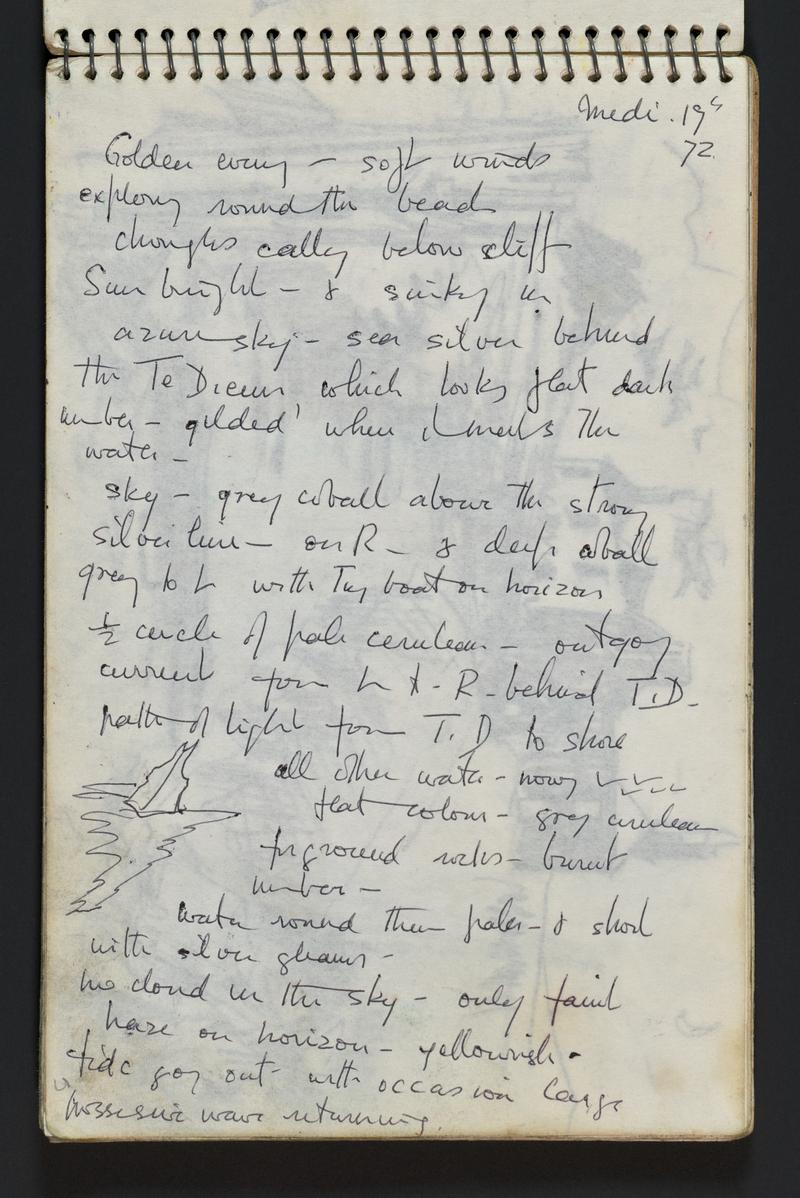 Medi. 19
72.
Golden eveng - soft winds
explorng round the head
choughs callg below cliff
Sun bright - & sinkg in
azure sky - sea silver behind
the Te Deum which looks flat dark
umber - gilded when it meets the
water -
sky - grey cobalt above the strong
silver line - on R - & deep cobalt
grey to L with Tug boat on horizon
½ circle of pale cerulean - outgog
current from L to R - behind T.D.
path of light from T.D to shore
all other water - now
flat colour - grey cerulean
forground rocks - burnt
umber -
water round them paler - & shot
with silver gleams -
no cloud in the sky - only faint
haze on horizon - yellowish -
tide gog out - with occasion large
possesive wave returning.